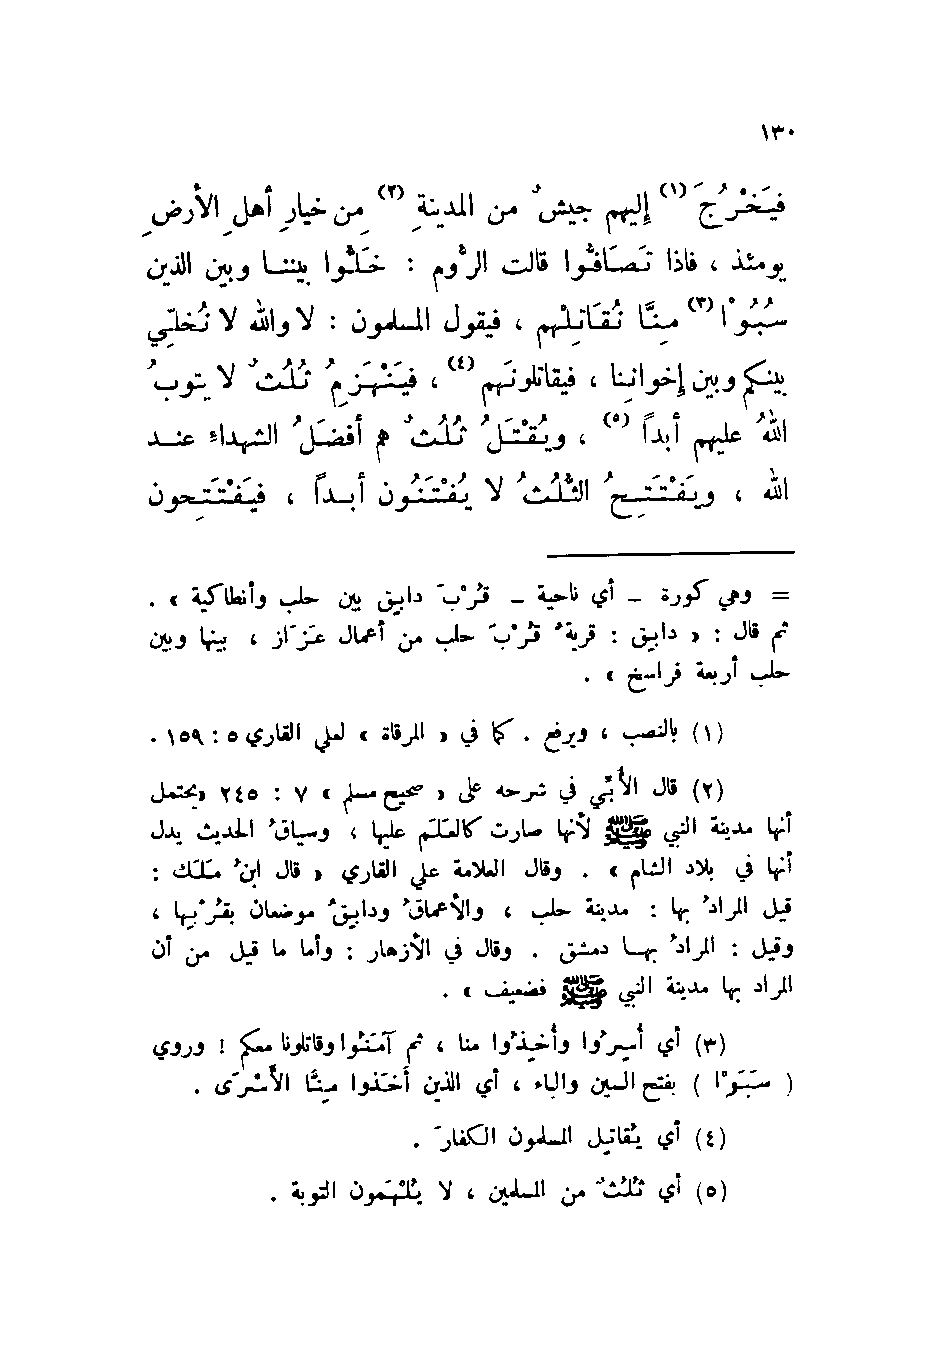 ١٣٠
فيَخْرُجَ (١) إليهم جيشٌ من المدينةِ (٢) مِن خيارِ أهلِ الأرضِ
يومئذ ، فاذا تَصَافُّوا قالت الرُّوم : خَلُّوا بيننا وبين الذين
سُبُوْا (٣) مِنَّا نُقَاتِلْهم ، فيقول المسلمون : لا والله لا نُخلِّي
بينكم وبين إخواننا ، فيقاتلونَهم (٤) ، فيَنْهَزِمُ ثُلُثٌ لا يتوبُ
اللهُ عليهم أبداً (٥) ، ويُقْتَلُ ثُلُثٌ هم أفضَلُ الشهداء عند
الله ، ويَفْتَتِحُ الثُّلُثُ لا يُفْتَنُون أبداً ، فيَفْتَتِحون
= وهي كُورة - أي ناحية - قُرْبَ دابِق بين حلب وأنطاكية » .
ثم قال : « دابِق : قريةٌ قُرْبَ حلب من أعمال عَزَاز ، بينها وبين
حلب أربعة فراسخ » .
(١) بالنصب ، ويرفع . كما في « المرقاة » لعلي القاري ٥ : ١٥٩ .
(٢) قال الأُبِّي في شرحه على « صحيح مسلم » ٧ : ٢٤٥ «يحتمل
أنها مدينة النبي ﷺ لأنها صارت كالعَلَم عليها ، وسياقُ الحديث يدل
أنها في بلاد الشام » . وقال العلامة علي القاري « قال ابنُ مَلَك :
قيل المرادُ بها : مدينة حلب ، والأعماقُ ودابِقٌ موضعان بقُرْبِها ،
وقيل : المرادُ بها دمشق . وقال في الأزهار : وأما ما قيل من أن
المراد بها مدينة النبي ﷺ فضعيف » .
(٣) أي أُسِروا وأُخِذُوا منا ، ثم آمَنُوا وقاتلونا معكم ! وروي
( سَبَوْا ) بفتح السين والباء ، أي الذين أَخَذوا مِنَّا الأَسْرَى .
(٤) أي يُقاتِل المسلمون الكفارَ .
(٥) أي ثُلُثٌ من المسلمين ، لا يُلْهَمون التوبة .